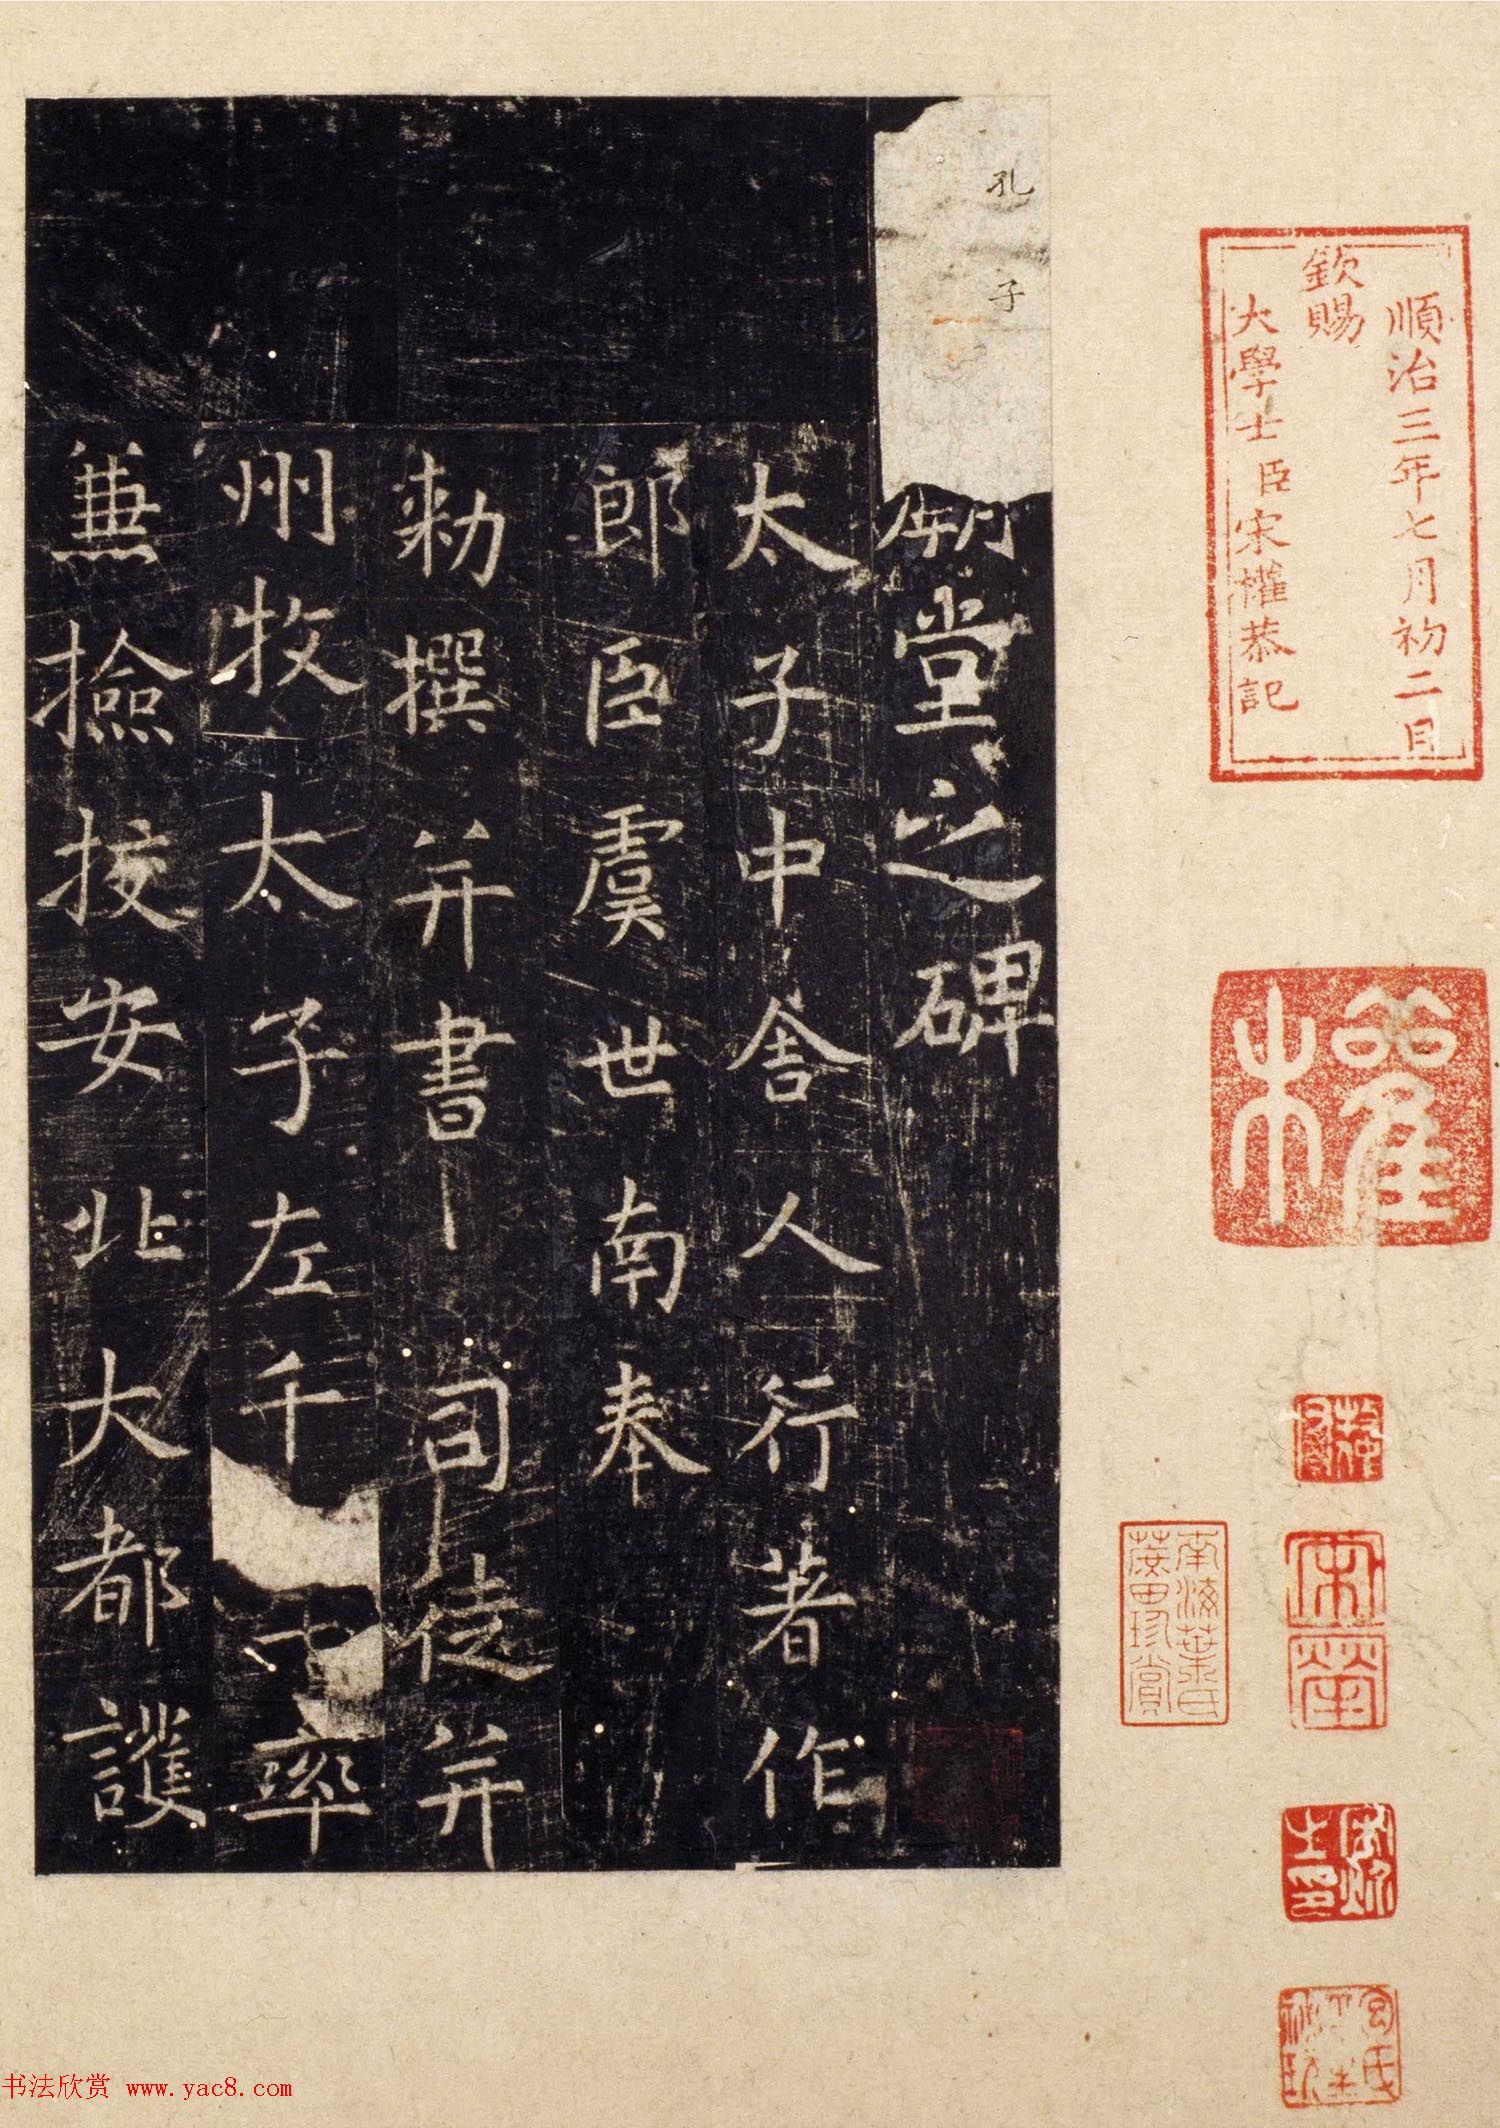 順治三年七月初二日
欽賜
大學士臣宋權恭記
權
宋犖
南海葉氏
蔗田珍賞
孔子
廟堂之碑
太子中舍人行著作
郎臣虞世南奉
勑撰并書 司徒并
州牧太子左千牛率
兼撿挍安北大都護
书法欣赏 www.yac8.com